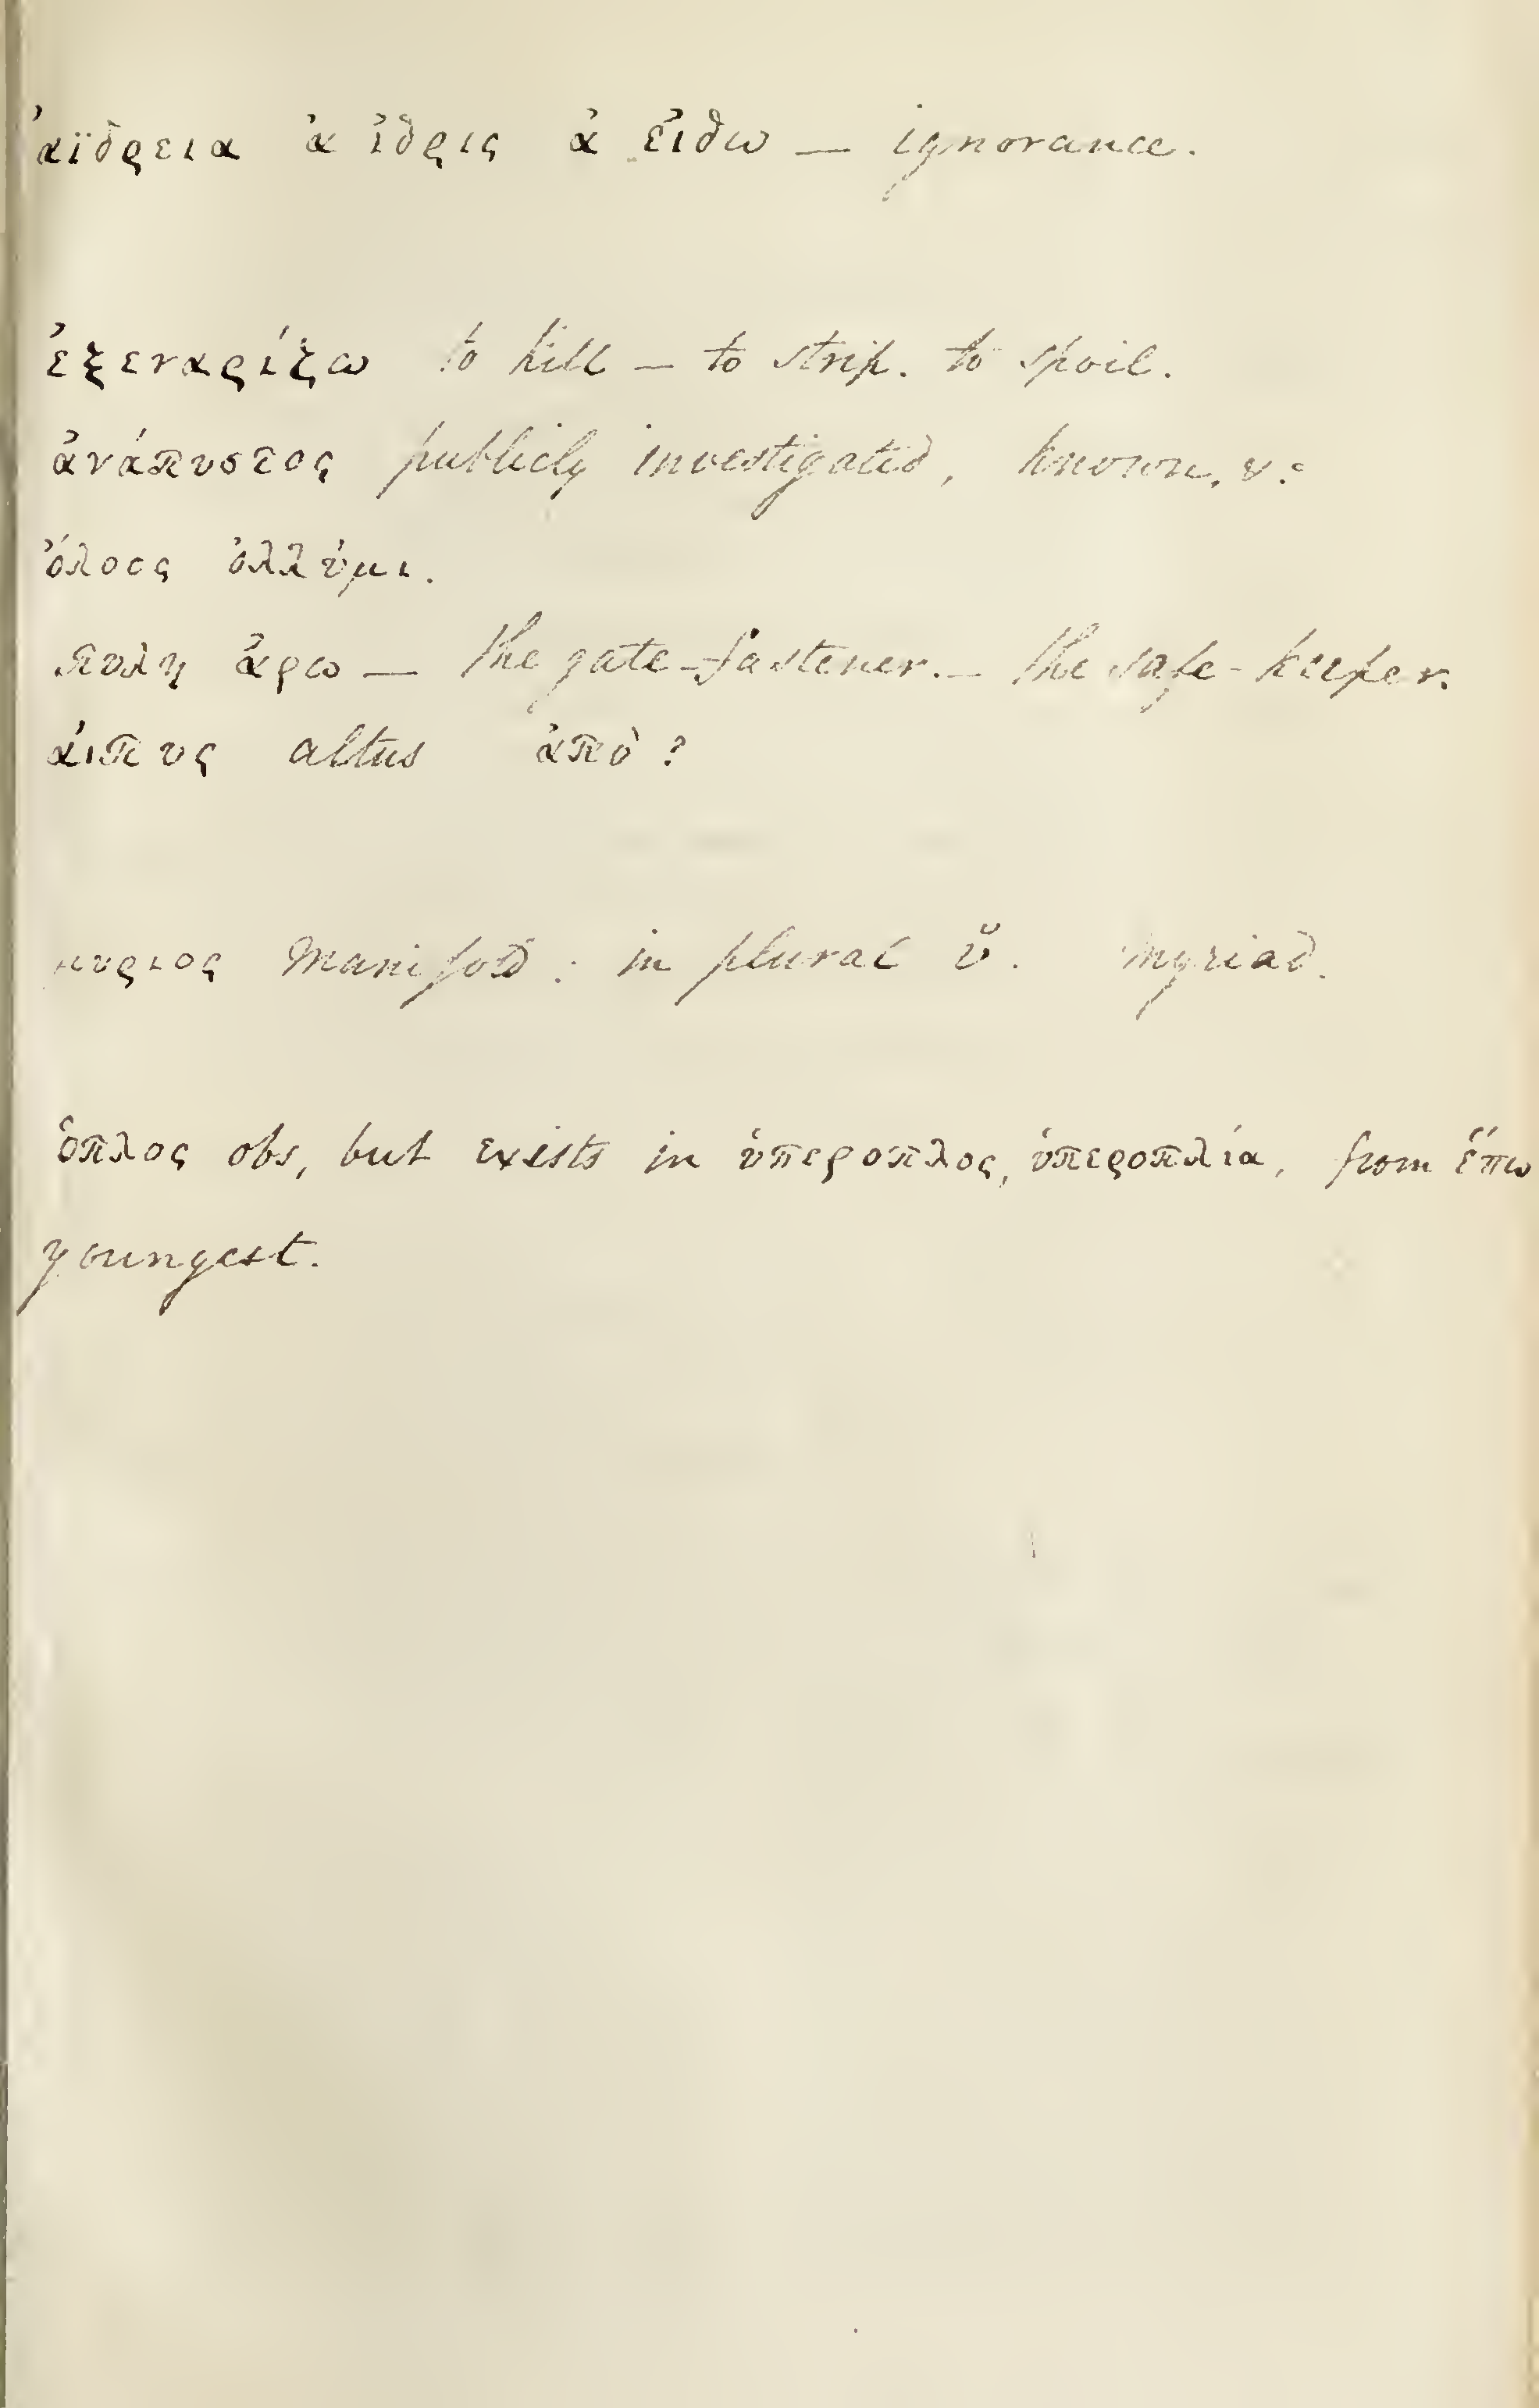 ἀϊδρεια ἀ ἰδρις ἀ ἐιδω — ignorance.
ἐξεναρίζω to kill — to strip. to spoil.
ἀνάπυστος publicly investigated, known. &c
ὄλοος ὀλλύμι.
πυλη ἀρω — the gate-fastener. — the safe-keeper.
ἀιπυς altus ἀπὸ?
μυριος Manifold: in plural ῠ. myriad.
ὁπλος obs, but exists in ὑπεροπλος, ὑπεροπλία, from ἕπω
youngest.